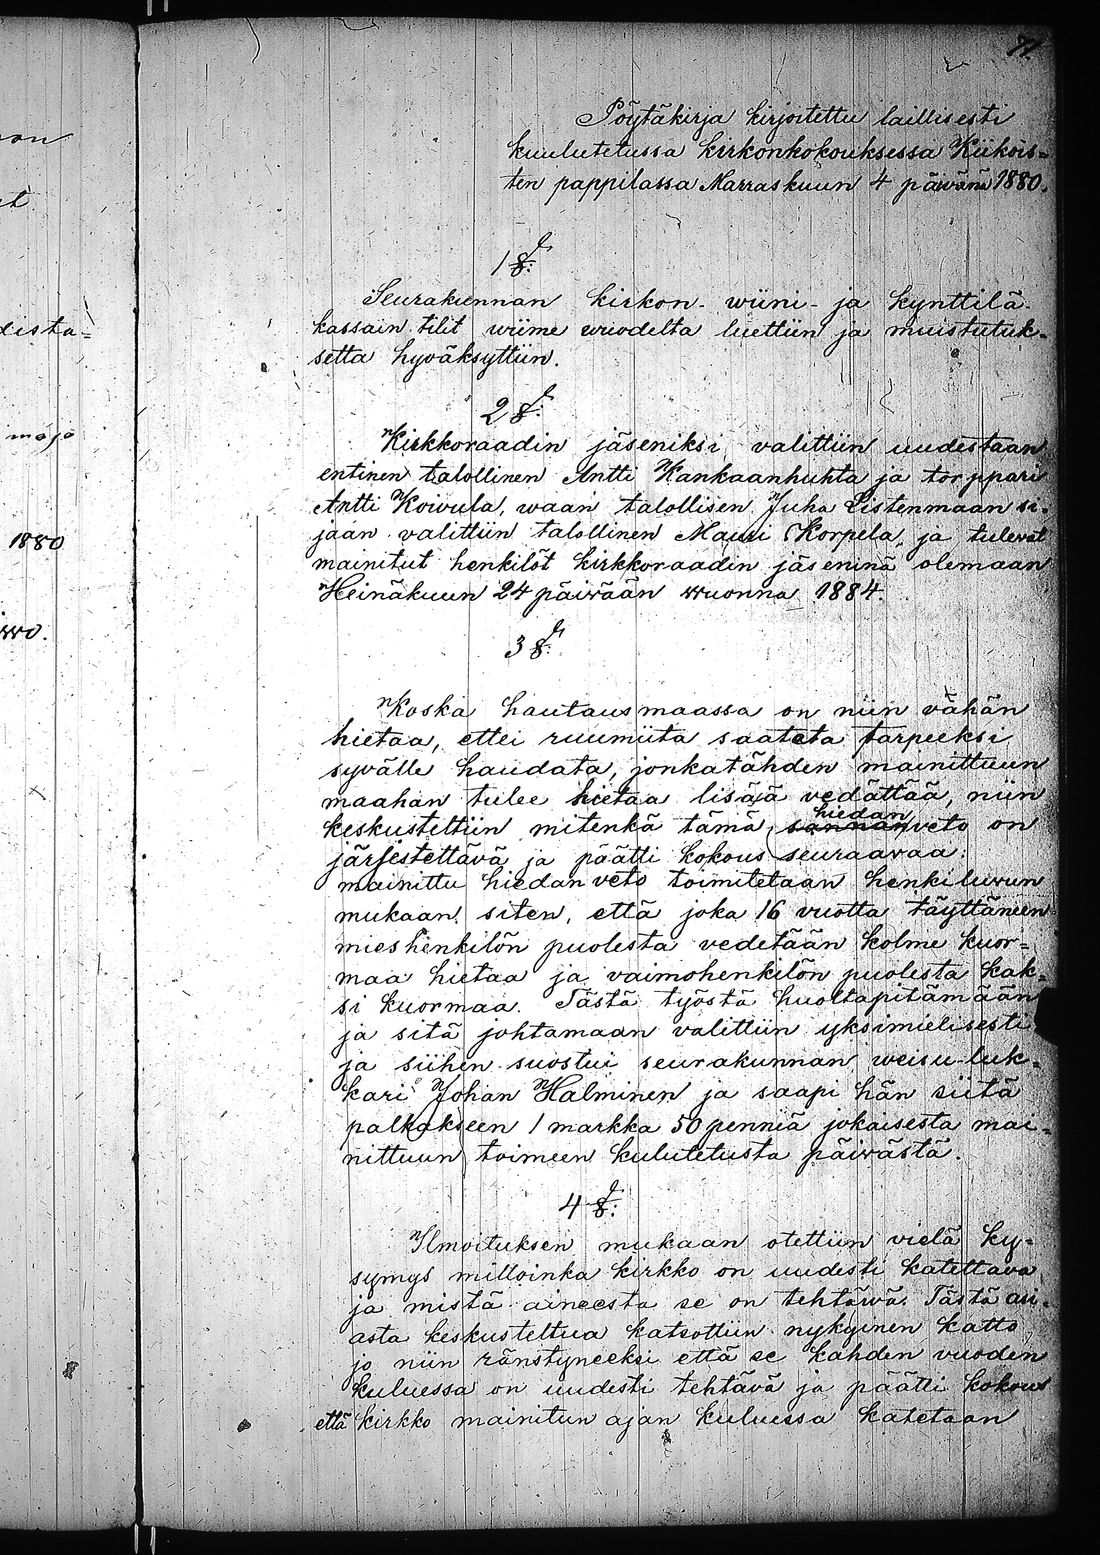 71.
Pöytäkirja kirjoitettu laillisesti
kuulutetussa kirkonkokouksessa Kiikois=
ten pappilassa Marraskuun 4 päivänä 1880.
1 §:
Seurakunnan kirkon- wiini- ja kynttilä-
kassain tilit wiime wuodelta luettiin ja muistutuk=
setta hyväksyttiin.
2 §:
Kirkkoraadin jäseniksi valittiin uudestaan
entinen talollinen Antti Kankaanhuhta ja torppari
Antti Koivula, waan talollisen Juha Listenmaan si=
jaan valittiin talollinen Mauri Korpela, ja tulevat
mainitut henkilöt kirkkoraadin jäseninä olemaan
Heinäkuun 24 päivään wuonna 1884.
3 §:
Koska hautausmaassa on niin vähän
hietaa, ettei ruumiita saateta tarpeeksi
syvälle haudata, jonkatähden mainittuun
maahan tulee hietaa lisää vedättää, niin
keskusteltiin mitenkä tämä sannan hiedan veto on
järjestettävä ja päätti kokous seuraavaa:
mainittu hiedan veto toimitetaan henkiluvun
mukaan siten, että joka 16 vuotta täyttäneen
mieshenkilön puolesta vedetään kolme kuor=
maa hietaa ja vaimohenkilön puolesta kak=
si kuormaa. Tästä työstä huoltapitämään
ja sitä johtamaan valittiin yksimielisesti
ja siihen suostui seurakunnan weisu-luk=
kari Johan Halminen ja saapi hän siitä
palkakseen 1 markka 50 penniä jokaisesta mai=
nittuun toimeen kulutetusta päivästä.
4 §:
Ilmoituksen mukaan otettiin vielä ky=
symys milloinka kirkko on uudesti katettava
ja mistä aineesta se on tehtävä. Tästä asi=
asta keskusteltua katsottiin nykyinen katto
jo niin ränstyneeksi että se kahden vuoden
kuluessa on uudesti tehtävä ja päätti kokous
että kirkko mainitun ajan kuluessa katetaan
1880